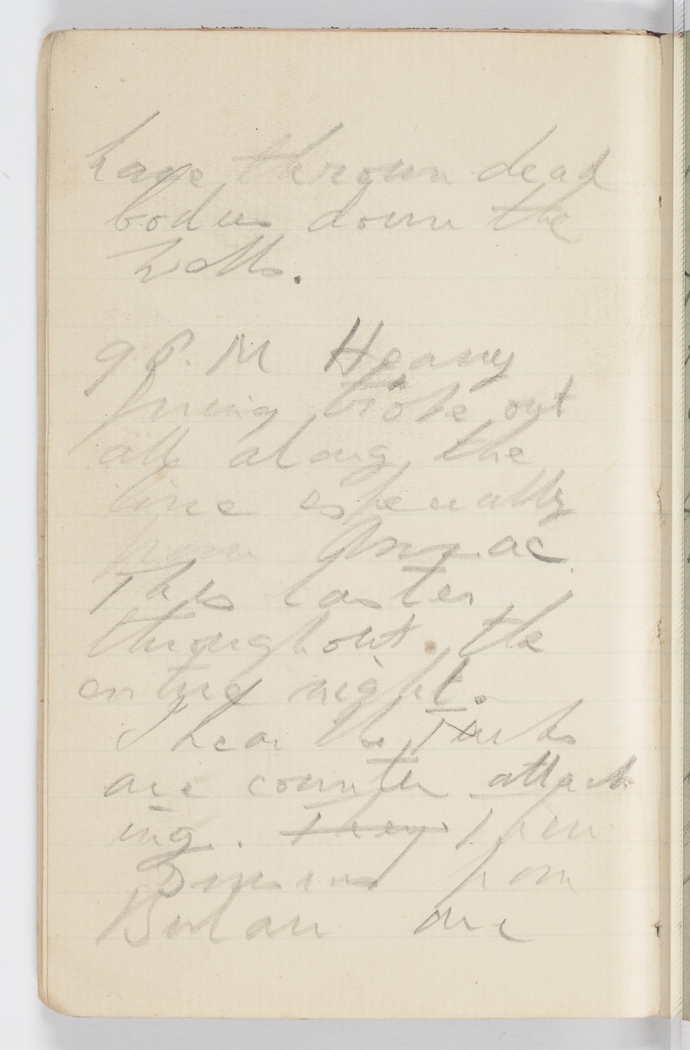 have thrown dead
bodies down the
wells.
9 P.M Heavy
firing broke out
all along the
line especially
from Anzac.
This lasted
throughout the
entire night.
I hear the Turks
are counter attack
ing. They Their
Divisions from
Bulair are